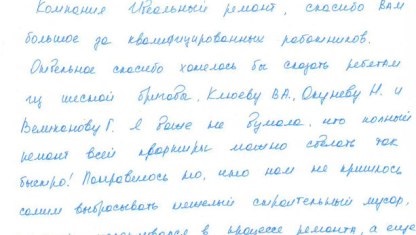 Компания Идеальный ремонт, спасибо Вам
большое за квалифицированных работников.
Отдельное спасибо хотелось бы сказать ребятам
из шестой бригады, Клюеву ВА, Окуневу Н. и
Великанову Г. Я даже не думала, что полный
ремонт всей квартиры можно сделать так
быстро! Понравилось то, что нам не пришлось
самим выбрасывать тяжелый строительный мусор,
в процессе ремонта, а еще